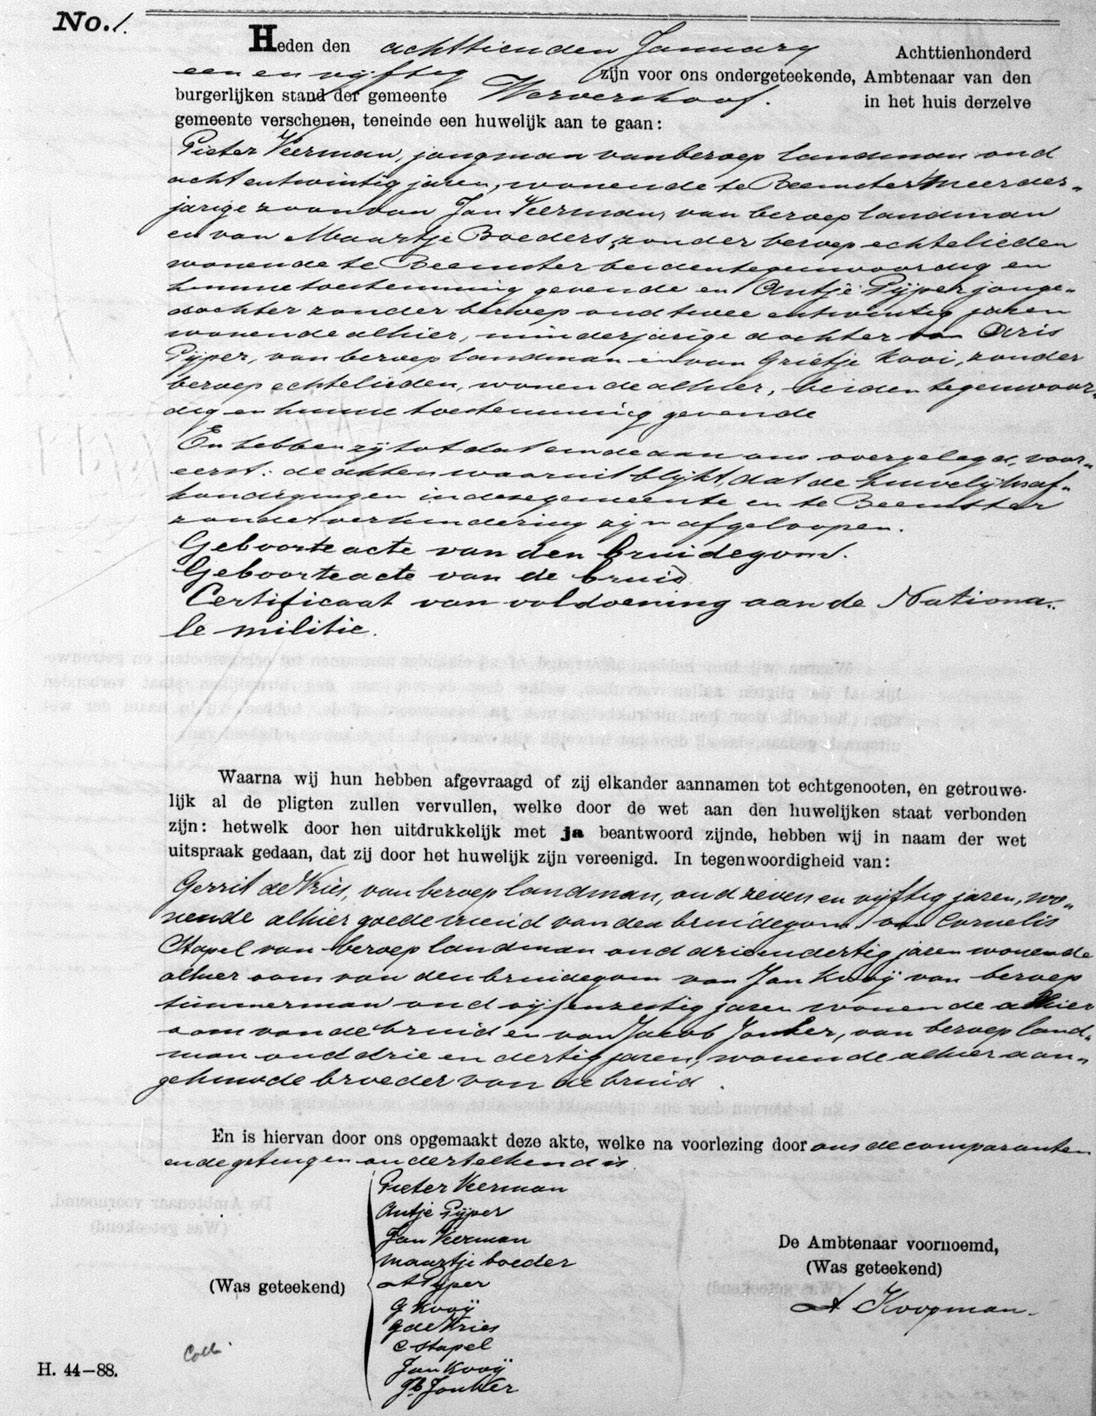 No. 1.
Heden den achttienden January Achttienhonderd
een en vijftig zijn voor ons ondergeteekende, Ambtenaar van den
burgerlijken stand der gemeente Wervershoof. in het huis derzelve
gemeente verschenen, teneinde een huwelijk aan te gaan:
Pieter Veerman, jongman van beroep landman oud
acht en twintig jaren, wonende te Beemster meerder-
jarige zoon van Jan Veerman, van beroep landman
en van Maartje Boeders, zonder beroep echtelieden
wonende te Beemster beiden tegenwoordig en
hunne toestemming gevende en Antje Pijper jonge-
dochter zonder beroep oud twee en twintig jaren
wonende alhier, minderjarige dochter van Arris
Pijper, van beroep landman en van Grietje Kooi, zonder
beroep echtelieden, wonende alhier, beiden tegenwoor-
dig en hunne toestemming gevende
En hebben zij tot dat einde aan ons overgelegd, voor-
eerst: de akten waaruit blijkt, dat de huwelijksaf-
kondigingen in deze gemeente en te Beemster
zonder verhindering zijn afgeloopen.
Geboorteacte van den bruidegom.
Geboorteacte van de bruid
Certificaat van voldoening aan de Nationa-
le militie.
Waarna wij hun hebben afgevraagd of zij elkander aannamen tot echtgenooten, en getrouwe-
lijk al de pligten zullen vervullen, welke door de wet aan den huwelijken staat verbonden
zijn: hetwelk door hen uitdrukkelijk met ja beantwoord zijnde, hebben wij in naam der wet
uitspraak gedaan, dat zij door het huwelijk zijn vereenigd. In tegenwoordigheid van:
Gerrit de Vries, van beroep landman, oud zeven en vijftig jaren, wo-
nende alhier goede vriend van den bruidegom van Cornelis
Stapel van beroep landman oud drieendertig jaren wonende
alhier oom van den bruidegom van Jan Kooij van beroep
timmerman oud vijfenzestig jaren wonende alhier
oom van de bruid en van Jacob Jonker, van beroep land-
man oud drie en dertig jaren, wonende alhier aan-
gehuwde broeder van de bruid.
En is hiervan door ons opgemaakt deze akte, welke na voorlezing door ons de comparanten
en de getuigen onderteekend is.
Pieter Veerman
Antje Pijper
Jan Veerman
maartje boeder
A Pyper
(Was geteekend)
G Kooij
G de Vries
C Stapel
Jan Kooij
Jb Jonker
De Ambtenaar voornoemd,
(Was geteekend)
A Koopman.
Coll.
H. 44-88.